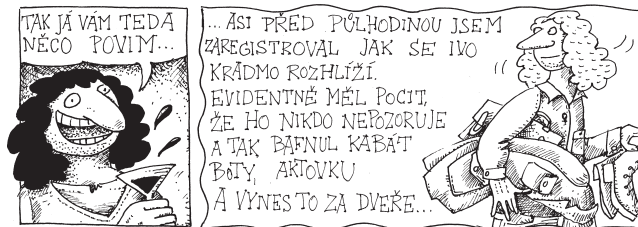 TAK JÁ VÁM TEDA
NĚCO POVÍM...
...ASI PŘED PŮLHODINOU JSEM
ZAREGISTROVAL JAK SE IVO
KRADMO ROZHLÍŽÍ.
EVIDENTNĚ MĚL POCIT,
ŽE HO NIKDO NEPOZORUJE
A TAK BAFNUL KABÁT
BOTY, AKTOVKU
A VYNES TO ZA DVEŘE...